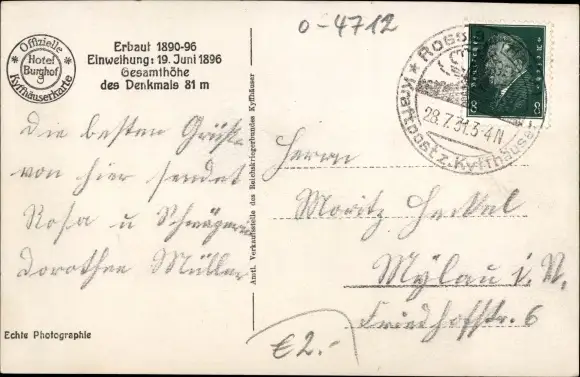 o-4712
Offizielle
Hotel
Burghof
Kyffhäuserkarte
Erbaut 1890-96
Einweihung: 19. Juni 1896
Gesamthöhe
des Denkmals 81 m
Die besten Grüße
von hier sendet
Rosa u Schwägerin
Dorothee Müller
Echte Photographie
Amtl. Verkaufsstelle des Reichskriegerbundes Kyffhäuser
8 8
28.7.31.3-4N
Kraftpost z. Kyffhäuser
Herrn
Moritz Heckel
Mylau i. V.
Friedhofstr. 6
€2.-